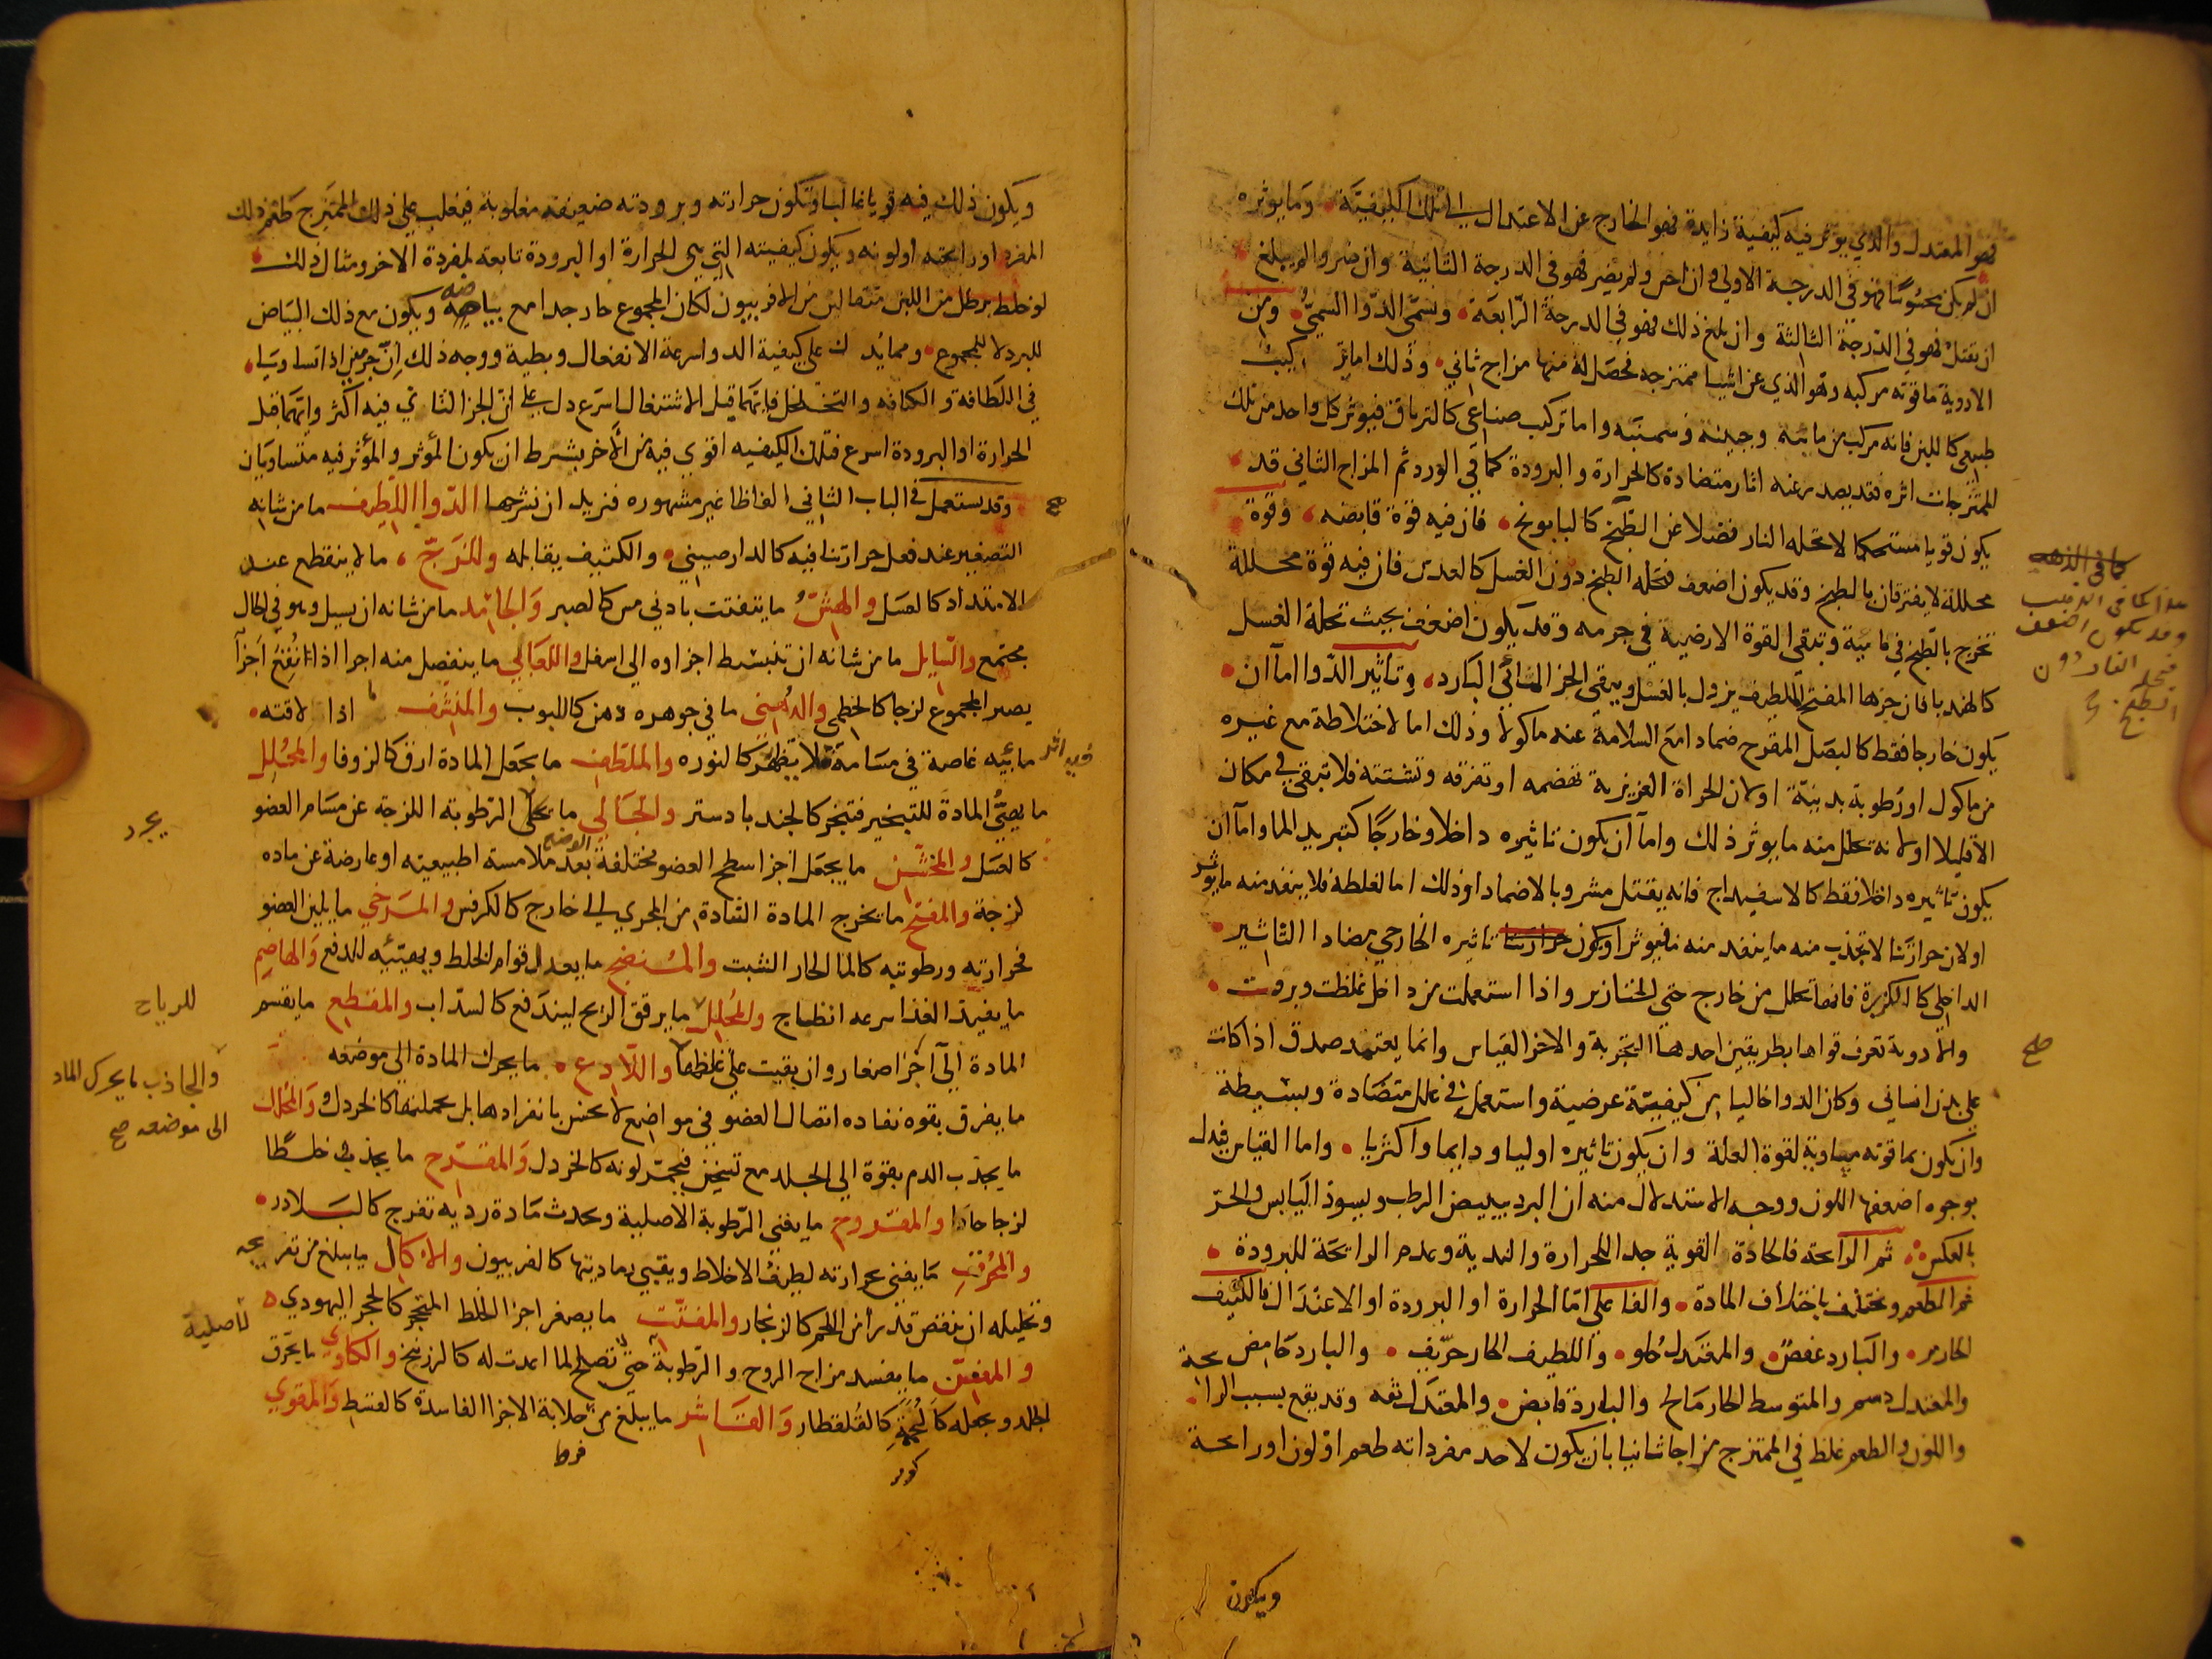 فهو المعتدل والذي يوثر فيه كيفية زايدة فهو الخارج عن الاعتدال الى تلك الكيفية وما يوثره
ان لم يكن محسوسا فهو في الدرجة الاولي وان احس ولم يضر فهو في الدرجة الثانية وان ضر ولم يبلغ
ان يقتل فهو في الدرجة الثالثة وان بلغ ذلك فهو في الدرجة الرابعة ويسمى الدوا السمي ومن
الادوية ما قوته مركبه وهو الذي عن اشيا ممتزجه يحصل له منها مزاج ثاني وذلك اما تر كيب
طبيعي كاللبن فانه مركب من مائيه وجبنيه وسمنيه واما تركيب صناعي كالترياق فيوثر كل واحد من تلك
الممتزجات اثره فقد يصدر عنه اثار متضادة كالحرارة والبرودة كما في الورد ثم المزاج الثاني قد
يكون قويا مستحكما لا تحله النار فضلا عن الطبخ كالبابونج فان فيه قوة قابضه وقوة
محللة لا يفترقان بالطبخ وقد يكون اضعف فتحله الطبخ دون الغسل كالعدس فان فيه قوة محللة
تخرج بالطبخ في مائيه وتبقى القوة الارضية في جرمه وقد يكون اضعف بحيث تحله الغسل
كالهندبا فان جزها المفتح اللطيف يزول بالغسل ويبقى الجز المائي البارد وتاثير الدوا اما ان
يكون خارجا فقط كالبصل المقرح ضمادا مع السلامة عنه ماكولا وذلك اما لاختلاطه مع غيره
من ماكول او رطوبة بدنية او لان الحراة الغريزية تهضمه او تفرقه وتشتته فلا تبقى في مكان
الا قليلا او لانه تحلل منه ما يوثر ذلك واما ان يكون تاثيره داخلا وخارجا كتبريد الما واما ان
يكون تاثيره داخلا فقط كالاسفيداج فانه يقتل مشروبا لا ضمادا وذلك اما لغلظه فلا ينفد منه ما يوثر
او لان حرارتنا لا تجذب منه ما ينفد منه فيوثر او يكون حرارتنا تاثيره الخارجي مضادا التاثير
الداخلي كالكزبرة فانها تحلل من خارج حتى الخنازير واذا استعملت من داخل غلظت وبردت
والادوية تعرف قواها بطريقين احدهما التجربة والاخر القياس وانما يعتمد صدق اذا كانت
على بدن انساني وكان الدوا خاليا من كيفية عرضية واستعمل في علل متضادة وبسيطة
وان يكون بما قوته مساوية لقوة العلة وان يكون تاثيره اوليا ودايما واكثريا واما القياس فيدل
بوجوه اضعفها اللون ووجه الاستدلال منه ان البرد يبيض الرطب ويسود اليابس والحر
بالعكس ثم الرائحة فالحادة القوية جدا للحرارة والندية وعدم الرائحة للبرودة
ثم الطعم ويختلف باختلاف المادة والفاعل اما الحرارة او البرودة او الاعتدال فالكثيف
الحار مر والبارد عفص والمعتدل حلو واللطيف الحار حريف والبارد حامض
والمعتدل دسم والمتوسط الحار مالح والبارد قابض والمعتدل تفه وقد يقع بسبب الرائحة
واللون والطعم غلط في الممتزج مزاجا ثانيا بان يكون لاحد مفرداته طعم او لون او رائحة
ويكون
كما في الذهب
وقد يكون اضعف
النار دون
الطبخ
صح
ويكون ذلك فيه قويا غالبا وتكون حرارته وبرودته ضعيفه مغلوبة فيغلب على ذلك الممتزج طعم ذلك
المفرد او رائحته او لونه ويكون كيفيته التي هي الحرارة او البرودة تابعة لمفردة الاخر ومثال ذلك
لو خلط برطل من اللبن مثقالين من الافربيون لكان المجموع حار جدا مع بياضه ويكون مع ذلك البياض
للبرد لا للمجموع ومما يدلك على كيفية الدوا سرعة الانفعال وبطيه ووجه ذلك ان جرمين اذا تساويا
في اللطافة والكثافه والتخلخل فايهما قبل الاشتعال اسرع دل على ان الجز الناري فيه اكثر وايهما قبل
الحرارة او البرودة اسرع فتلك الكيفيه اقوى فيه من الاخر بشرط ان يكون المؤثر والمؤثر فيه متساويان
وقد يستعمل في الباب الثاني الفاظا غير مشهوره فنريد ان نشرحها الدوا اللطيف ما من شانه
التصغير عند فعل حرارتنا فيه كالدارصيني والكثيف يقابله واللزج ما لا ينقطع عند
الامتداد كالعسل والهش ما يتفتت بادني مس كالصبر والجامد ما من شانه ان يسيل وهو في الحال
مجتمع والسايل ما من شانه ان تنبسط اجزاوه الي اسفل واللعابي ما ينفصل منه اجزا اذا انقع اجزآ
يصير المجموع لزجا كالخطمي والدهني ما في جوهره دهن كاللبوب والمنشف اذا لاقته
مائيه غاصة في مسامه فلا يظهر كالنوره والملطف ما يجعل المادة ارق كالزوفا والمحلل
ما يهيئ المادة للتبخير فتبخر كالجندبادستر والجالي ما يحلل الرطوبه اللزجه عن مسام العضو
كالعسل والمخشن ما يجعل اجزا سطح العضو مختلفة الوضع بعد ملامسته الطبيعيه او عارضة عن ماده
لزجة والمفتح ما يخرج المادة السادة من المجري الى خارج كالكرفس والمرخي ما يلين العضو
بحرارته ورطوبته كالما الحار الشبت والمنضج ما يعدل قوام الخلط ويهيئه للدفع والهاضم
ما يفيد الغذا سرعه انطباخ والمحلل ما يرقق الريح ليندفع كالسداب والمقطع ما يقسم
المادة الى اجزا صغار وان بقيت على غلظها واللادع ما يحرك المادة الي موضعه
ما يفرق بقوه نفاده اتصال العضو في مواضع لا يحس بانفرادها بل بجملتها كالخردل والمحكك
ما يجذب الدم بقوة الى الجلد مع تسخين فيحمر لونه كالخردل والمقرح ما يجذب خلطا
لزجا حادا والمقروح ما يفني الرطوبة الاصلية ويحدث مادة رديه تفرح كالبلادر
والمحرق ما يفني بحرارته لطيف الاخلاط ويبقي رماديتها كالفربيون والاكال ما يبلغ من تفريحه
وتحليله ان ينقص قدرا من اللحم كالزنجار والمفتت ما يصغر اجزا الخلط المتحجر كالحجر اليهودي
والمعفن ما يفسد مزاج الروح والرطوبة حتى لا تصلح لما اعدت له كالزرنيخ والكاوي ما يحرق
الجلد ويجعله كالحممة كالقلقطار والقاشر ما يبلغ من جلابة الاجزا الفاسدة كالقسط والمقوي
صح
فيه اثر
يجرد
للرياح
والجاذب ما يحرك الماد
الى موضعه صح
الاصلية
فرط